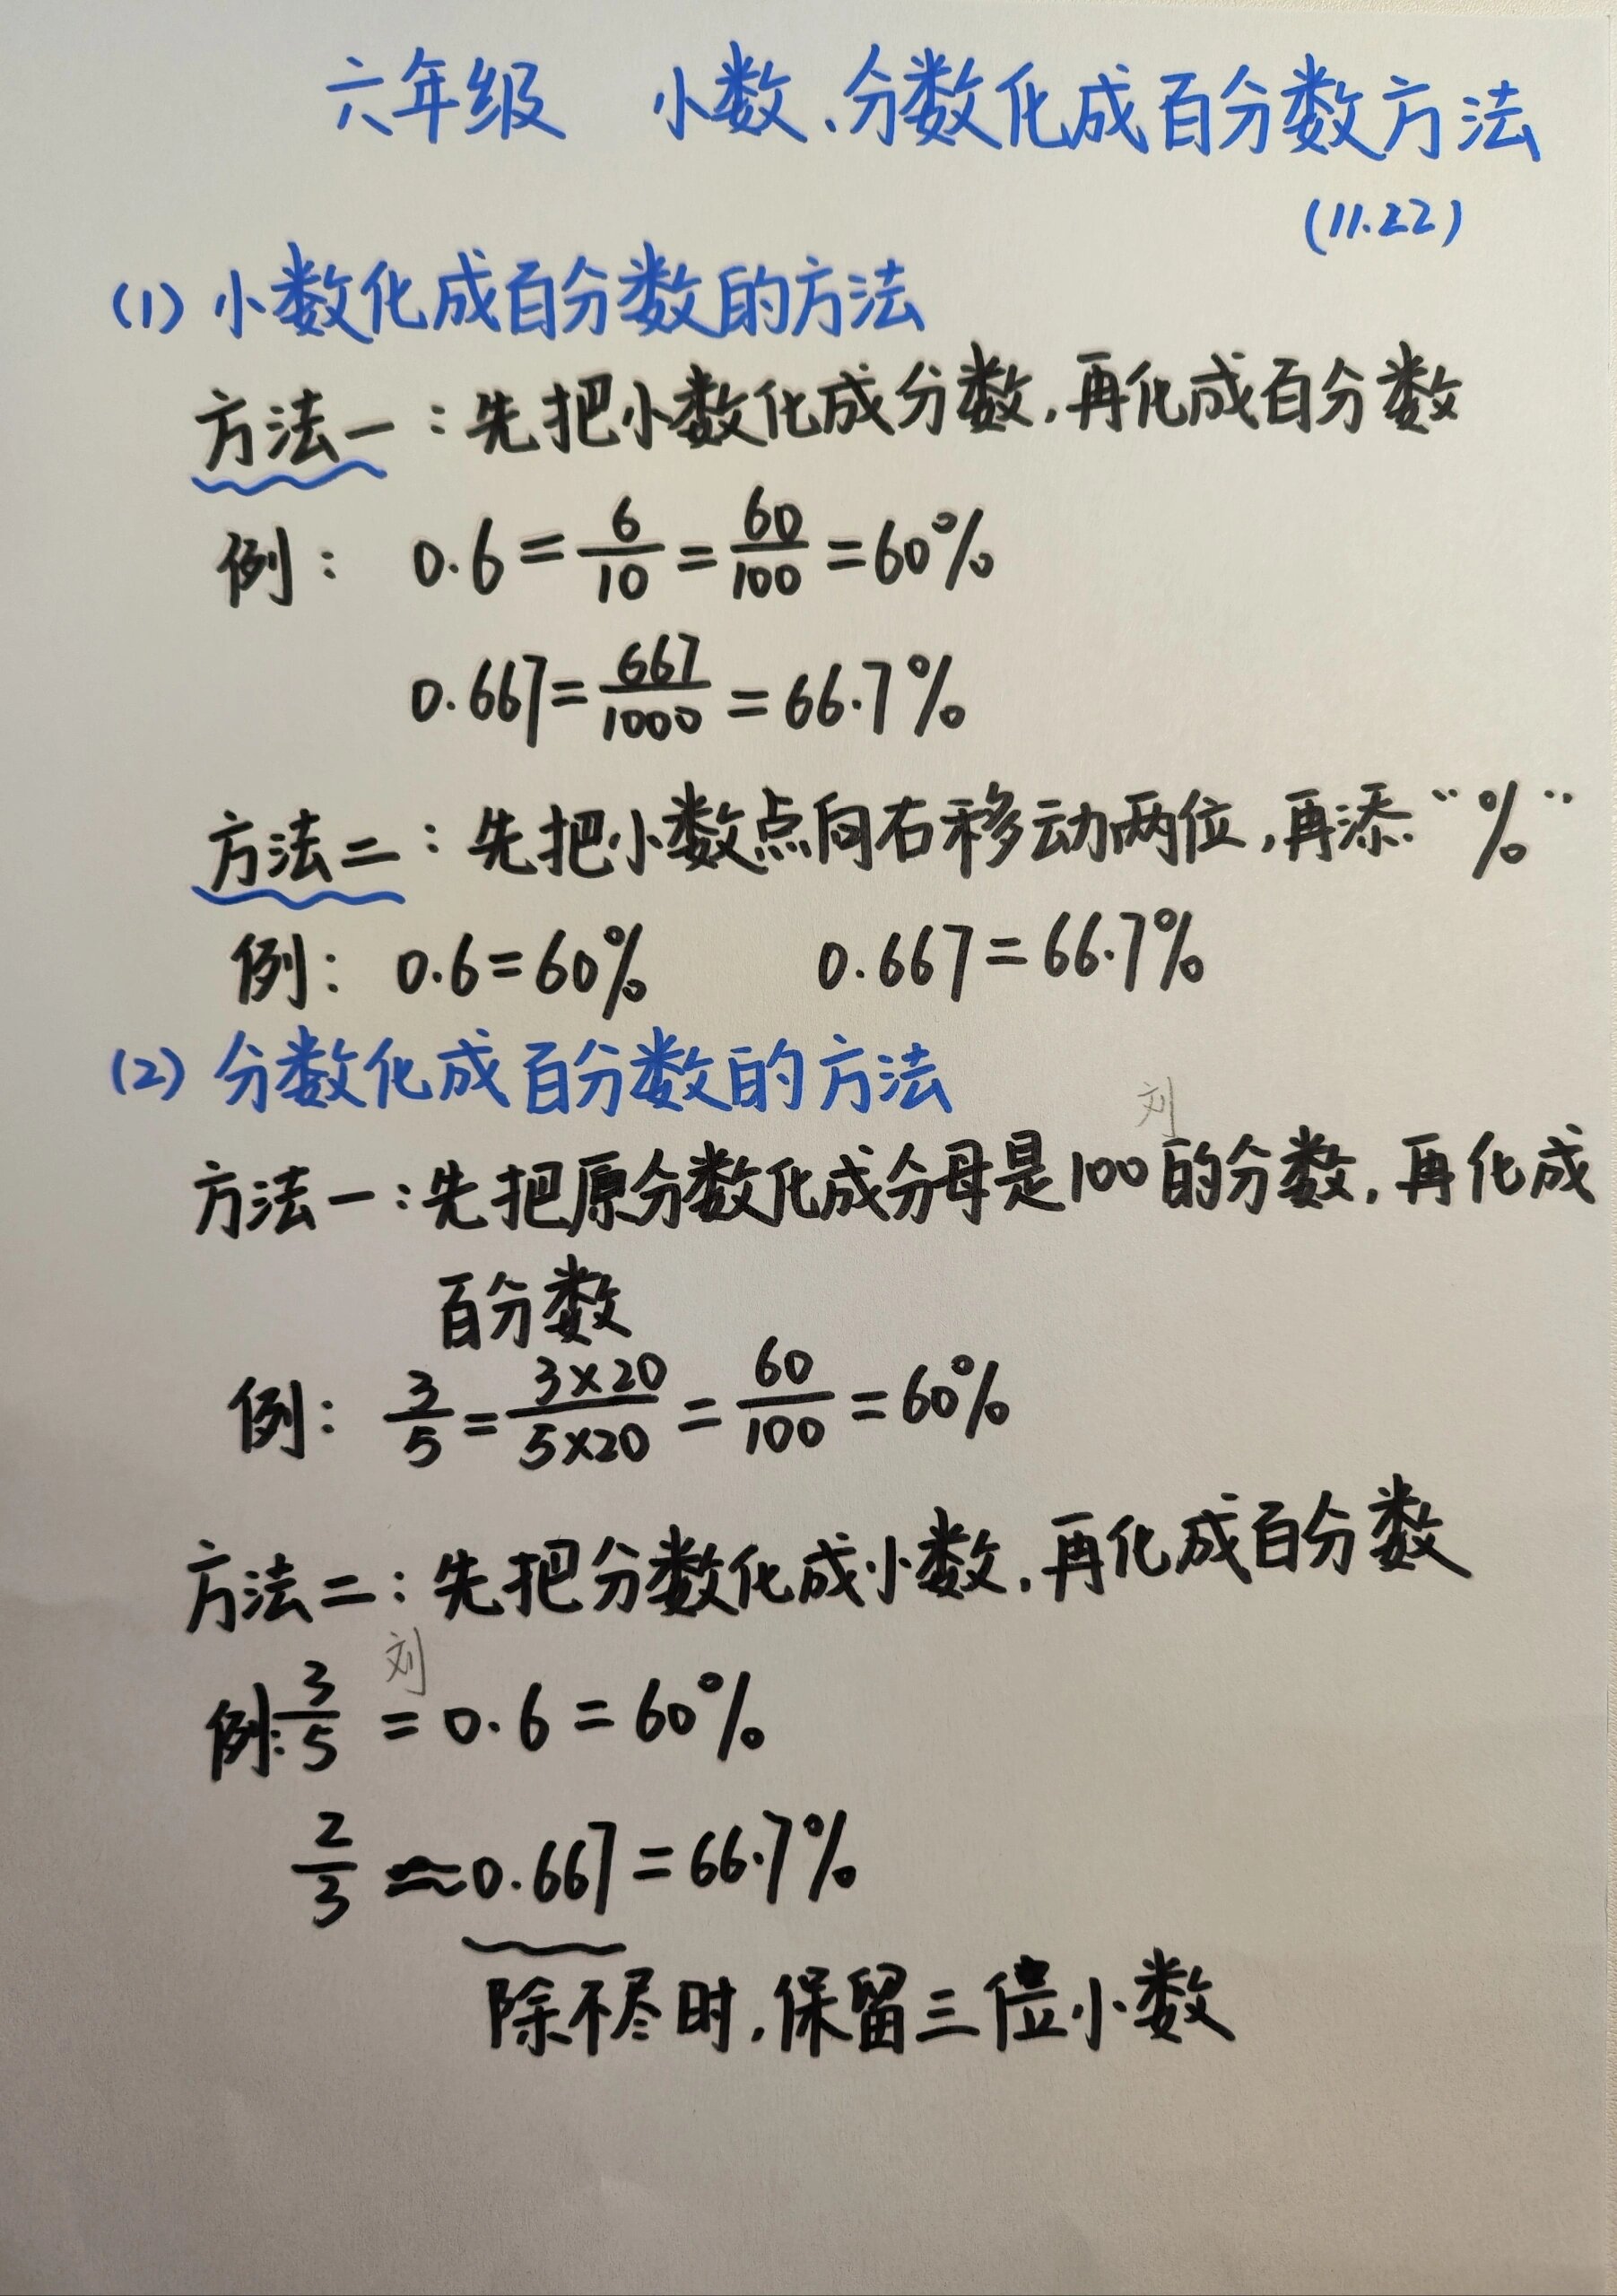 六年级 小数、分数化成百分数方法
(11.22)
(1) 小数化成百分数的方法
方法一：先把小数化成分数,再化成百分数
例： 0.6=6/10=60/100=60%
0.667=667/1000=66.7%
方法二：先把小数点向右移动两位,再添“%”
例： 0.6=60% 0.667=66.7%
(2) 分数化成百分数的方法
刘
方法一：先把原分数化成分母是100的分数,再化成
百分数
例： 3/5=3×20/5×20=60/100=60%
方法二：先把分数化成小数,再化成百分数
刘
例:3/5=0.6=60%
2/3≈0.667=66.7%
除不尽时,保留三位小数